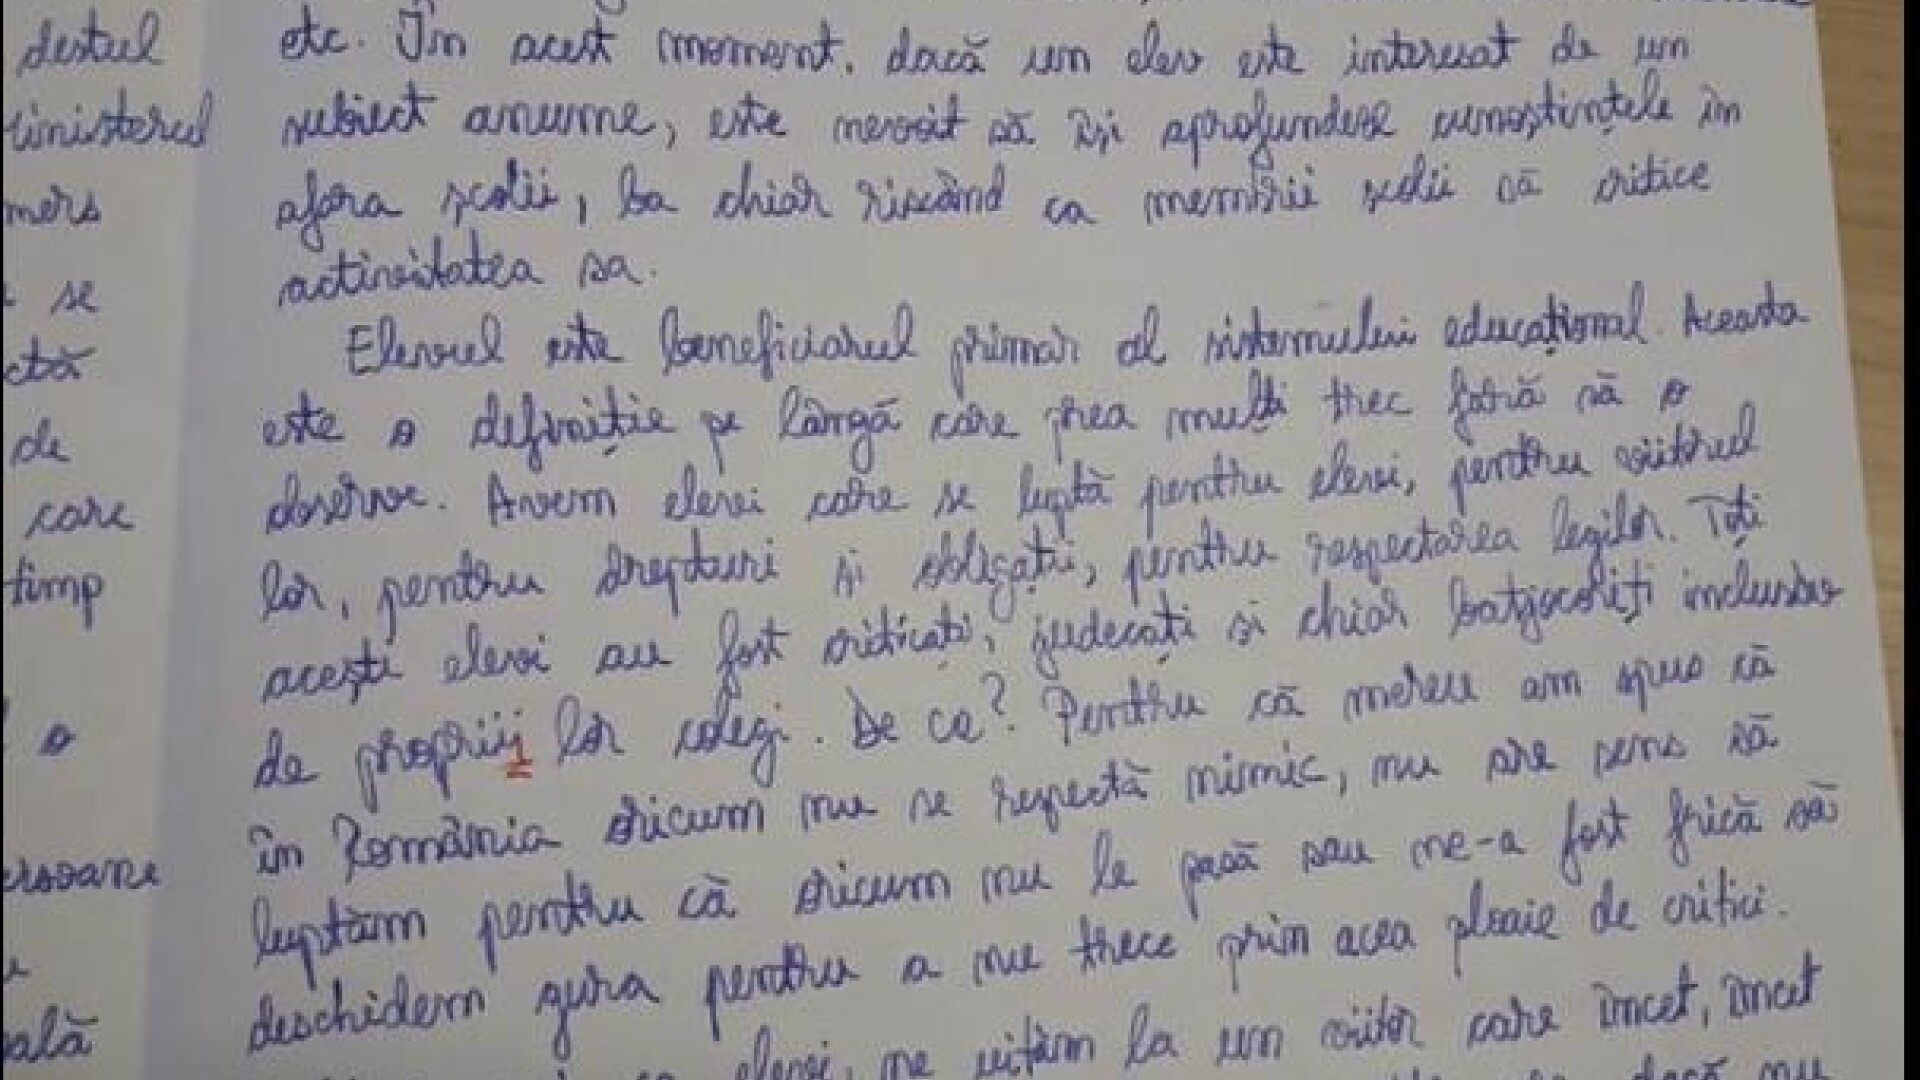 destul
ministerul
mers
se
ctă
de
care
timp
o
ersoane
ală
etc. În acest moment, dacă un elev este interesat de un
subiect anume, este nevoit să își aprofundeze cunoștințele în
afara școlii, ba chiar riscând ca membrii școlii să critice
activitatea sa.
Elevul este beneficiarul primar al sistemului educațional. Aceasta
este o definiție pe lângă care prea mulți trec fără să o
observe. Avem elevi care se luptă pentru elevi, pentru viitorul
lor, pentru drepturi și obligații, pentru respectarea legilor. Toți
acești elevi au fost criticați, judecați și chiar batjocoriți inclusiv
de propriii lor colegi. De ce? Pentru că mereu am spus că
în România oricum nu se respectă nimic, nu are sens să
luptăm pentru că oricum nu le pasă sau ne-a fost frică să
deschidem gura pentru a nu trece prin acea ploaie de critici.
elevi, ne uităm la un viitor care încet, încet
dacă nu